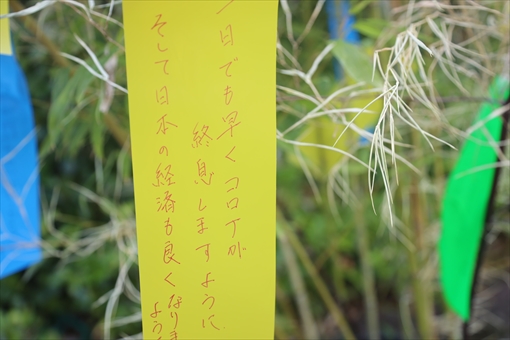 一日でも早くコロナが
終息しますように
そして日本の経済も良くなりま
よう